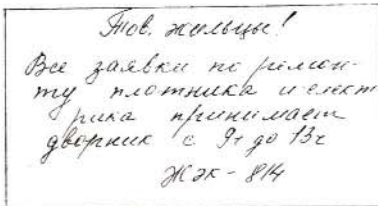 Тов. жильцы!
Все заявки по ремон-
ту плотника и элект
рика принимает
дворник с 9ч до 13ч
ЖЭК - 814